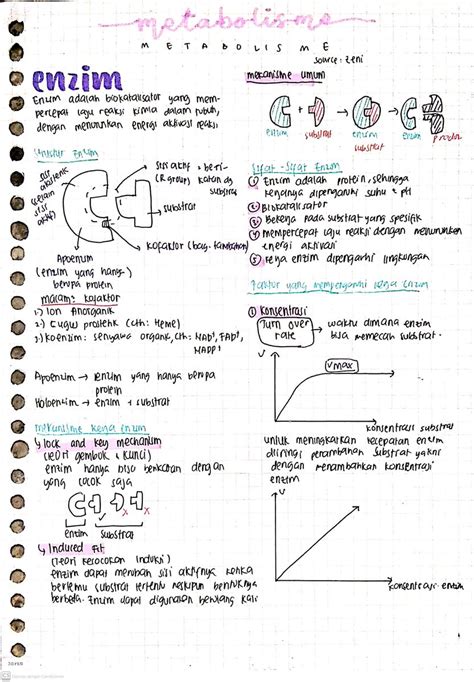 metabolisme
METABOLISME
source: zeni
enzim
Enzim adalah biokatalisator yang mem-
percepat laju reaksi kimia dalam tubuh,
dengan menurunkan energi aktivasi reaksi
struktur Enzim
sisi
alosterik
(selain
sisi
aktif)
sisi aktif = beri-
(R group) katan dg
substrat
substrat
kofaktor (bag. tambahan)
Apoenzim
(enzim yang hanya
berupa protein)
macam2 kofaktor
1.) Ion Anorganik
2.) Gugus prostetik (cth: Heme)
3.) Koenzim: senyawa organik, cth: NAD+, FAD+,
NADP+
Apoenzim → enzim yang hanya berupa
protein
Holoenzim → enzim + substrat
mekanisme kerja enzim
↳ lock and key mechanism
(teori gembok & kunci)
enzim hanya bisa berikatan dengan
yang cocok saja
x x
enzim substrat
↳ Induced Fit
(teori kecocokan induksi)
enzim dapat merubah sisi aktifnya ketika
bertemu substrat tertentu meskipun bentuknya
berbeda. Enzim dapat digunakan berulang kali
mekanisme umum
+ → → +
enzim substrat enzim enzim produk
substrat
Sifat-Sifat Enzim
① Enzim adalah protein, sehingga
kerjanya dipengaruhi suhu & pH
② Biokatalisator
③ Bekerja pada substrat yang spesifik
④ mempercepat laju reaksi dengan menurunkan
energi aktivasi
⑤ kerja enzim dipengaruhi lingkungan
Faktor yang mempengaruhi kerja Enzim
① Konsentrasi
Turn over rate → waktu dimana enzim
bisa memecah substrat.
V
Vmax
konsentrasi substrat
untuk meningkatkan kecepatan enzim
diiringi penambahan substrat yakni
dengan menambahkan konsentrasi
enzim
V
konsentrasi enzim